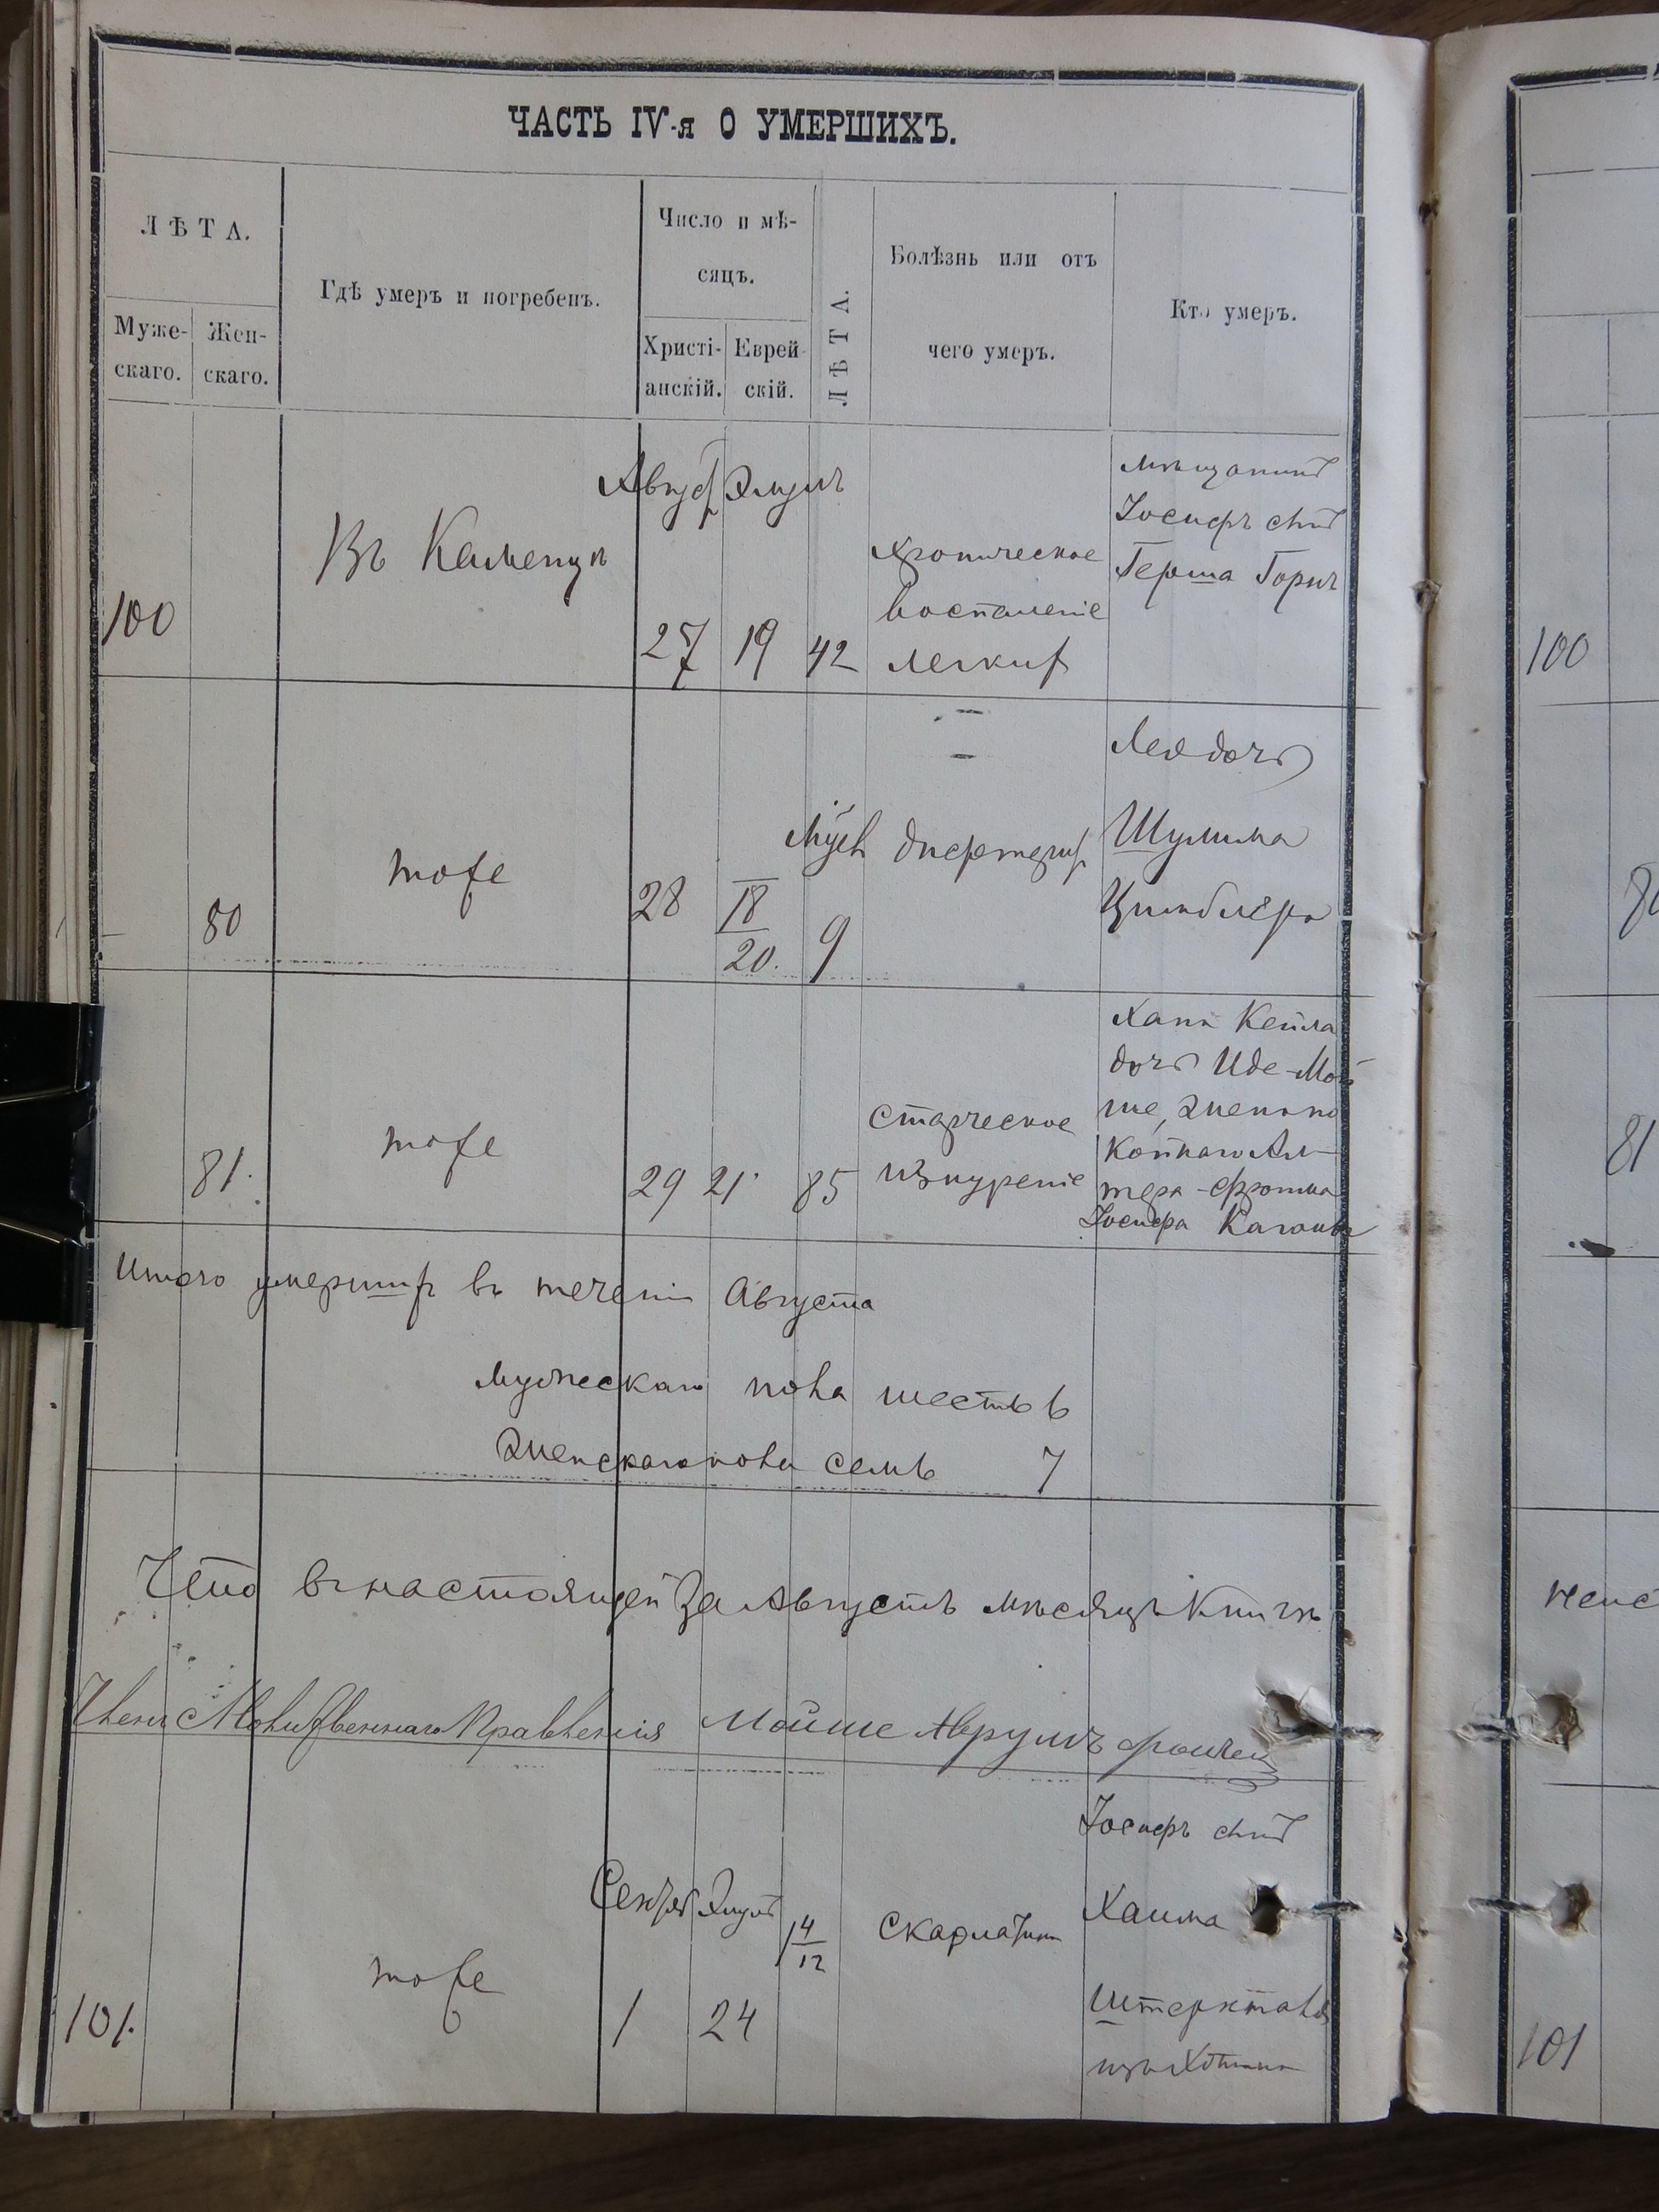 ЧАСТЬ IV-я О УМЕРШИХЪ.
ЛѢТА.
Муже-
скаго.
Жен-
скаго.
Гдѣ умеръ и погребенъ.
Число и мѣ-
сяцъ.
Христі-
анскій.
Еврей-
скій.
ЛѢТА.
Болѣзнь или отъ
чего умеръ.
Кто умеръ.
100
Въ Каменцѣ
Август Элулъ
27 19 42
Хроническое
воспаленіе
легкихъ
мѣщанинъ
Іосифъ сынъ
Герша
100
80
тоже
28 18
20. 9
дифтеритъ
Лея дочь
Шулима
81.
тоже
29 21 85
старческое
изнуреніе
Хана Кейла
дочь Иде-Мой
ше, жена по
койнаго Ал-
тера-Фроима
Іосифа
81
Итого умершихъ въ теченіи Августа
мужескаго пола шесть 6
женскаго пола семь 7
Что въ настоящей за Августъ мѣсяцъ книгѣ
Членъ Молитвеннаго Правленія Мойше Аврумъ
101.
тоже
Сентяб Элулъ
1 24
14
12
Скарлатина
Іосифъ сынъ
Хаима
изъ Хотина
101